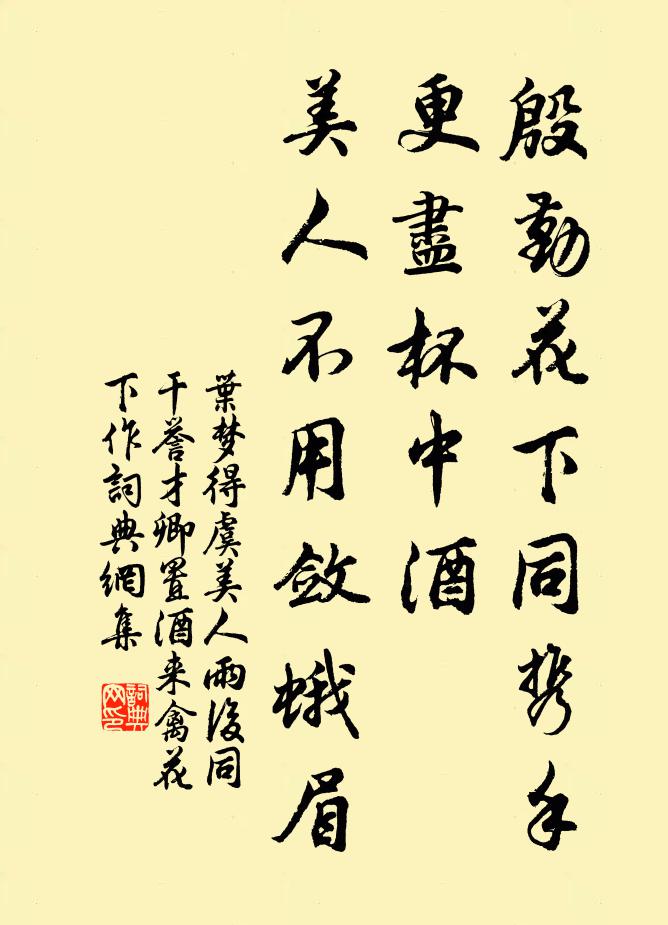 殷勤花下同携手
更盡杯中酒
美人不用斂蛾眉
葉梦得虞美人雨後同
干誉才卿置酒来禽花
下作詞典網集
詞典网印